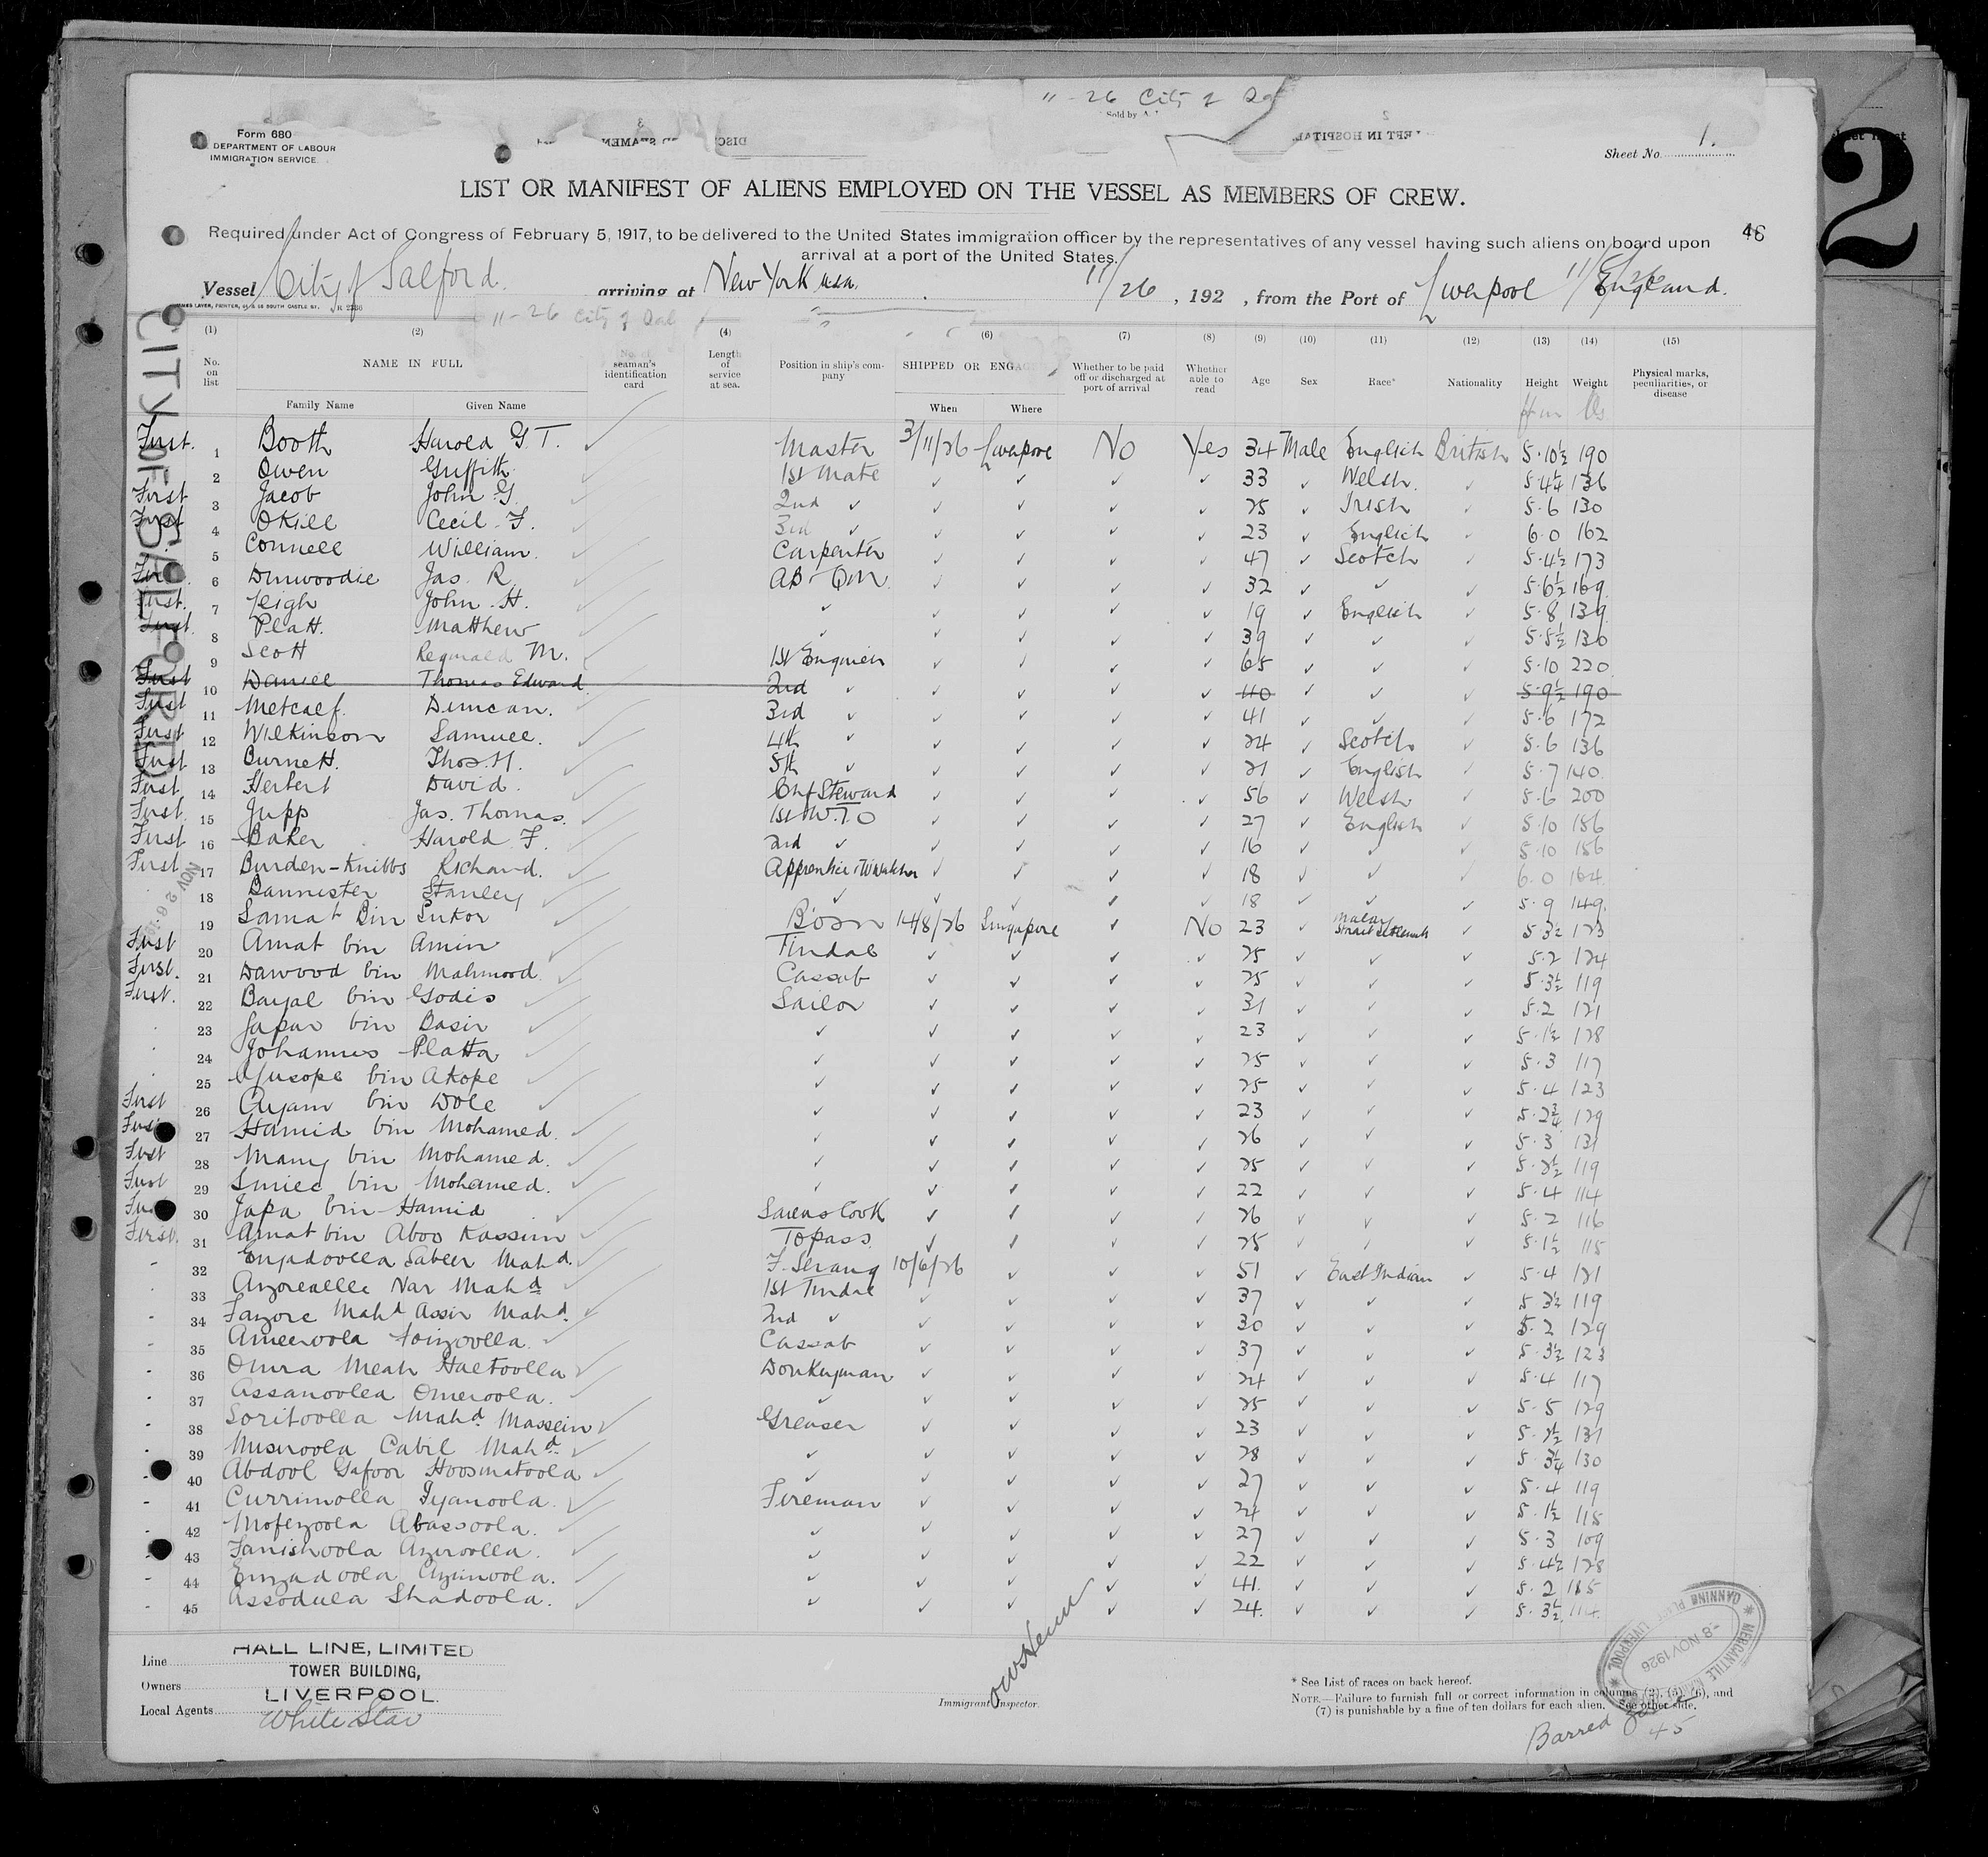 11-26 City of Dal
Sold by A.
LEFT IN HOSPITAL
Form 680
DEPARTMENT OF LABOUR
IMMIGRATION SERVICE
Sheet No. 1.
2
LIST OR MANIFEST OF ALIENS EMPLOYED ON THE VESSEL AS MEMBERS OF CREW.
Required under Act of Congress of February 5, 1917, to be delivered to the United States immigration officer by the representatives of any vessel having such aliens on board upon
arrival at a port of the United States.
46
Vessel City of Salford. arriving at New York USA. 11/26, 192 , from the Port of Liverpool England. 11/26
CITY OF SALFORD
11-26 City of Dal
(1) (2) (4) (6) (7) (8) (9) (10) (11) (12) (13) (14) (15)
No. on list NAME IN FULL No. of seaman's identification card Length of service at sea. Position in ship's company SHIPPED OR ENGAGED Whether to be paid off or discharged at port of arrival Whether able to read Age Sex Race* Nationality Height Weight Physical marks, peculiarities, or disease
Family Name Given Name When Where
First. 1 Booth Harold G. T. Master 3/11/26 Liverpool No Yes 34 Male English British 5·10½ 190
2 Owen Griffith 1st Mate ✓ ✓ ✓ ✓ 33 ✓ Welsh. ✓ 5·4¼ 136
First 3 Jacob John G. 2nd ✓ ✓ ✓ ✓ ✓ 25 ✓ Irish ✓ 5·6 130
First 4 Okill Cecil F. 3rd ✓ ✓ ✓ ✓ ✓ 23 ✓ English ✓ 6·0 162
5 Connell William. Carpenter ✓ ✓ ✓ ✓ 47 ✓ Scotch ✓ 5·4½ 173
First 6 Dinwoodie Jas. R. AB & QM ✓ ✓ ✓ ✓ 32 ✓ ✓ ✓ 5·6½ 169
First. 7 Leigh John. H. ✓ ✓ ✓ ✓ ✓ 19 ✓ English ✓ 5·8 139
First. 8 Platt. Matthew ✓ ✓ ✓ ✓ ✓ 39 ✓ ✓ ✓ 5·5½ 130
9 Scott Reginald M. 1st Engineer ✓ ✓ ✓ ✓ 65 ✓ ✓ ✓ 5·10 220
First 10 Daniel Thomas Edward 2nd ✓ ✓ ✓ ✓ ✓ 40 ✓ ✓ ✓ 5·9½ 190
First 11 Metcalf. Duncan. 3rd ✓ ✓ ✓ ✓ ✓ 41 ✓ ✓ ✓ 5·6 172
First 12 Wilkinson Samuel. 4th ✓ ✓ ✓ ✓ ✓ 24 ✓ Scotch ✓ 5·6 136
First 13 Burnett. Thos. H. 5th ✓ ✓ ✓ ✓ ✓ 21 ✓ English ✓ 5·7 140
First. 14 Herbert David. Chf Steward ✓ ✓ ✓ ✓ 56 ✓ Welsh ✓ 5·6 200
First. 15 Jupp Jas. Thomas. 1st W.T.O ✓ ✓ ✓ ✓ 27 ✓ English ✓ 5·10 156
First 16 Baker Harold F. 2nd ✓ ✓ ✓ ✓ ✓ 16 ✓ ✓ ✓ 5·10 156
First 17 Burden-Knibbs Richard. Apprentice ✓ ✓ ✓ ✓ 18 ✓ ✓ ✓ 6·0 164
18 Bannister Stanley ✓ ✓ ✓ ✓ ✓ 18 ✓ ✓ ✓ 5·9 149
19 Samat Bin Sukor Bosn 14/8/26 Singapore ✓ No 23 ✓ Malay Strait Settlements ✓ 5·3½ 123
First 20 Amat bin Amin Tindal ✓ ✓ ✓ ✓ 25 ✓ ✓ ✓ 5·2 124
First. 21 Dawood bin Mahmood. Cassab ✓ ✓ ✓ ✓ 25 ✓ ✓ ✓ 5·3½ 119
First. 22 Bayal bin Godis Sailor ✓ ✓ ✓ ✓ 31 ✓ ✓ ✓ 5·2 121
23 Japar bin Basir ✓ ✓ ✓ ✓ ✓ 23 ✓ ✓ ✓ 5·1½ 128
24 Johannus Platta ✓ ✓ ✓ ✓ ✓ 25 ✓ ✓ ✓ 5·3 117
25 Yusope bin Akope ✓ ✓ ✓ ✓ ✓ 25 ✓ ✓ ✓ 5·4 123
First 26 Ayam bin Dole ✓ ✓ ✓ ✓ ✓ 23 ✓ ✓ ✓ 5·2¾ 129
First 27 Hamid bin Mohamed. ✓ ✓ ✓ ✓ ✓ 26 ✓ ✓ ✓ 5·3 131
First 28 Many bin Mohamed. ✓ ✓ ✓ ✓ ✓ 25 ✓ ✓ ✓ 5·2½ 119
First 29 Smiee bin Mohamed. ✓ ✓ ✓ ✓ ✓ 22 ✓ ✓ ✓ 5·4 114
First 30 Japa bin Hamid Sailors Cook ✓ ✓ ✓ ✓ 26 ✓ ✓ ✓ 5·2 116
First. 31 Amat bin Aboo Kassim Topass ✓ ✓ ✓ ✓ 25 ✓ ✓ ✓ 5·1½ 115
32 Enjadoolla Sabeer Mahd. F. Serang 10/6/26 ✓ ✓ ✓ 51 ✓ East Indian ✓ 5·4 121
33 Azorealle Nar Mahd 1st Tindal ✓ ✓ ✓ ✓ 37 ✓ ✓ ✓ 5·3½ 119
34 Fazore Mahd Assir Mahd. 2nd ✓ ✓ ✓ ✓ ✓ 30 ✓ ✓ ✓ 5·2 129
35 Ameeroola Foizoolla. Cassab ✓ ✓ ✓ ✓ 37 ✓ ✓ ✓ 5·3½ 123
36 Omra Meah Haetoolla Donkeyman ✓ ✓ ✓ ✓ 24 ✓ ✓ ✓ 5·4 117
37 Assanoolla Omeroola. ✓ ✓ ✓ ✓ ✓ 25 ✓ ✓ ✓ 5·5 129
38 Soritoolla Mahd. Massein Greaser ✓ ✓ ✓ ✓ 23 ✓ ✓ ✓ 5·2½ 131
39 Musroola Cabil Mahd. ✓ ✓ ✓ ✓ ✓ 28 ✓ ✓ ✓ 5·3¼ 130
40 Abdool Gafoor Hoosmatoola ✓ ✓ ✓ ✓ ✓ 27 ✓ ✓ ✓ 5·4 119
41 Currimolla Iyanoola. Fireman ✓ ✓ ✓ ✓ 24 ✓ ✓ ✓ 5·1½ 115
42 Mofezoola Abassoola. ✓ ✓ ✓ ✓ ✓ 27 ✓ ✓ ✓ 5·3 109
43 Fanishoola Aziroolla. ✓ ✓ ✓ ✓ ✓ 22 ✓ ✓ ✓ 5·4½ 128
44 Enzadoola Azimoola. ✓ ✓ ✓ ✓ ✓ 41. ✓ ✓ ✓ 5·2 115
45 Assodulla Shadoola. ✓ ✓ ✓ ✓ ✓ 24. ✓ ✓ ✓ 5·3½ 114
Line HALL LINE, LIMITED
Owners TOWER BUILDING,
LIVERPOOL.
Local Agents White Star
Immigrant Inspector.
* See List of races on back hereof.
NOTE.—Failure to furnish full or correct information in columns (2), (5), (6), and
(7) is punishable by a fine of ten dollars for each alien. See other side.
MERCANTILE MARINE
CANNING PLACE LIVERPOOL
-8 NOV 1926
Barred Zone
45